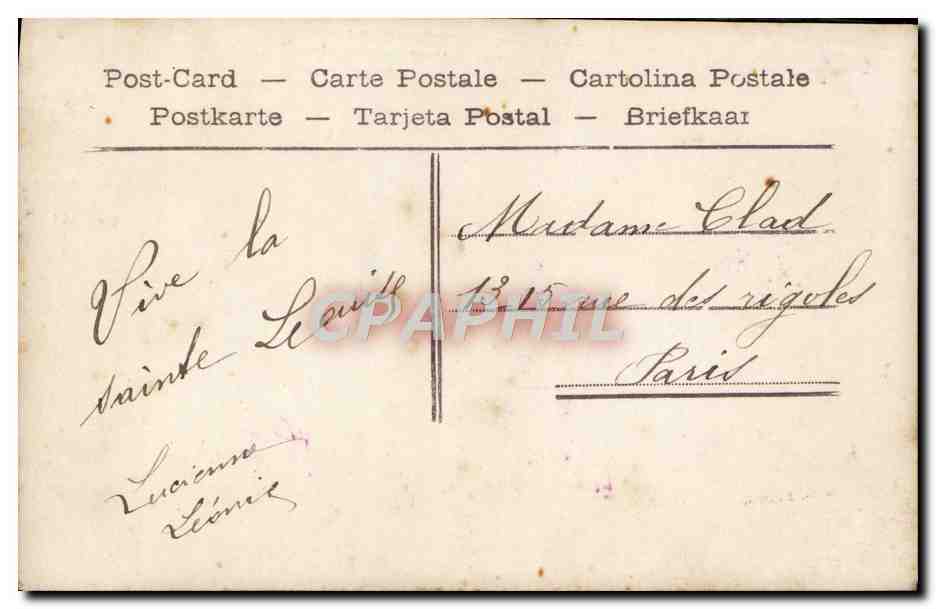 Post-Card — Carte Postale — Cartolina Postale
Postkarte — Tarjeta Postal — Briefkaar
Vive la
sainte Leouise
Lucienne
Léonie
Madame Clad
13 15 rue des rigoles
Paris
CPAPHIL